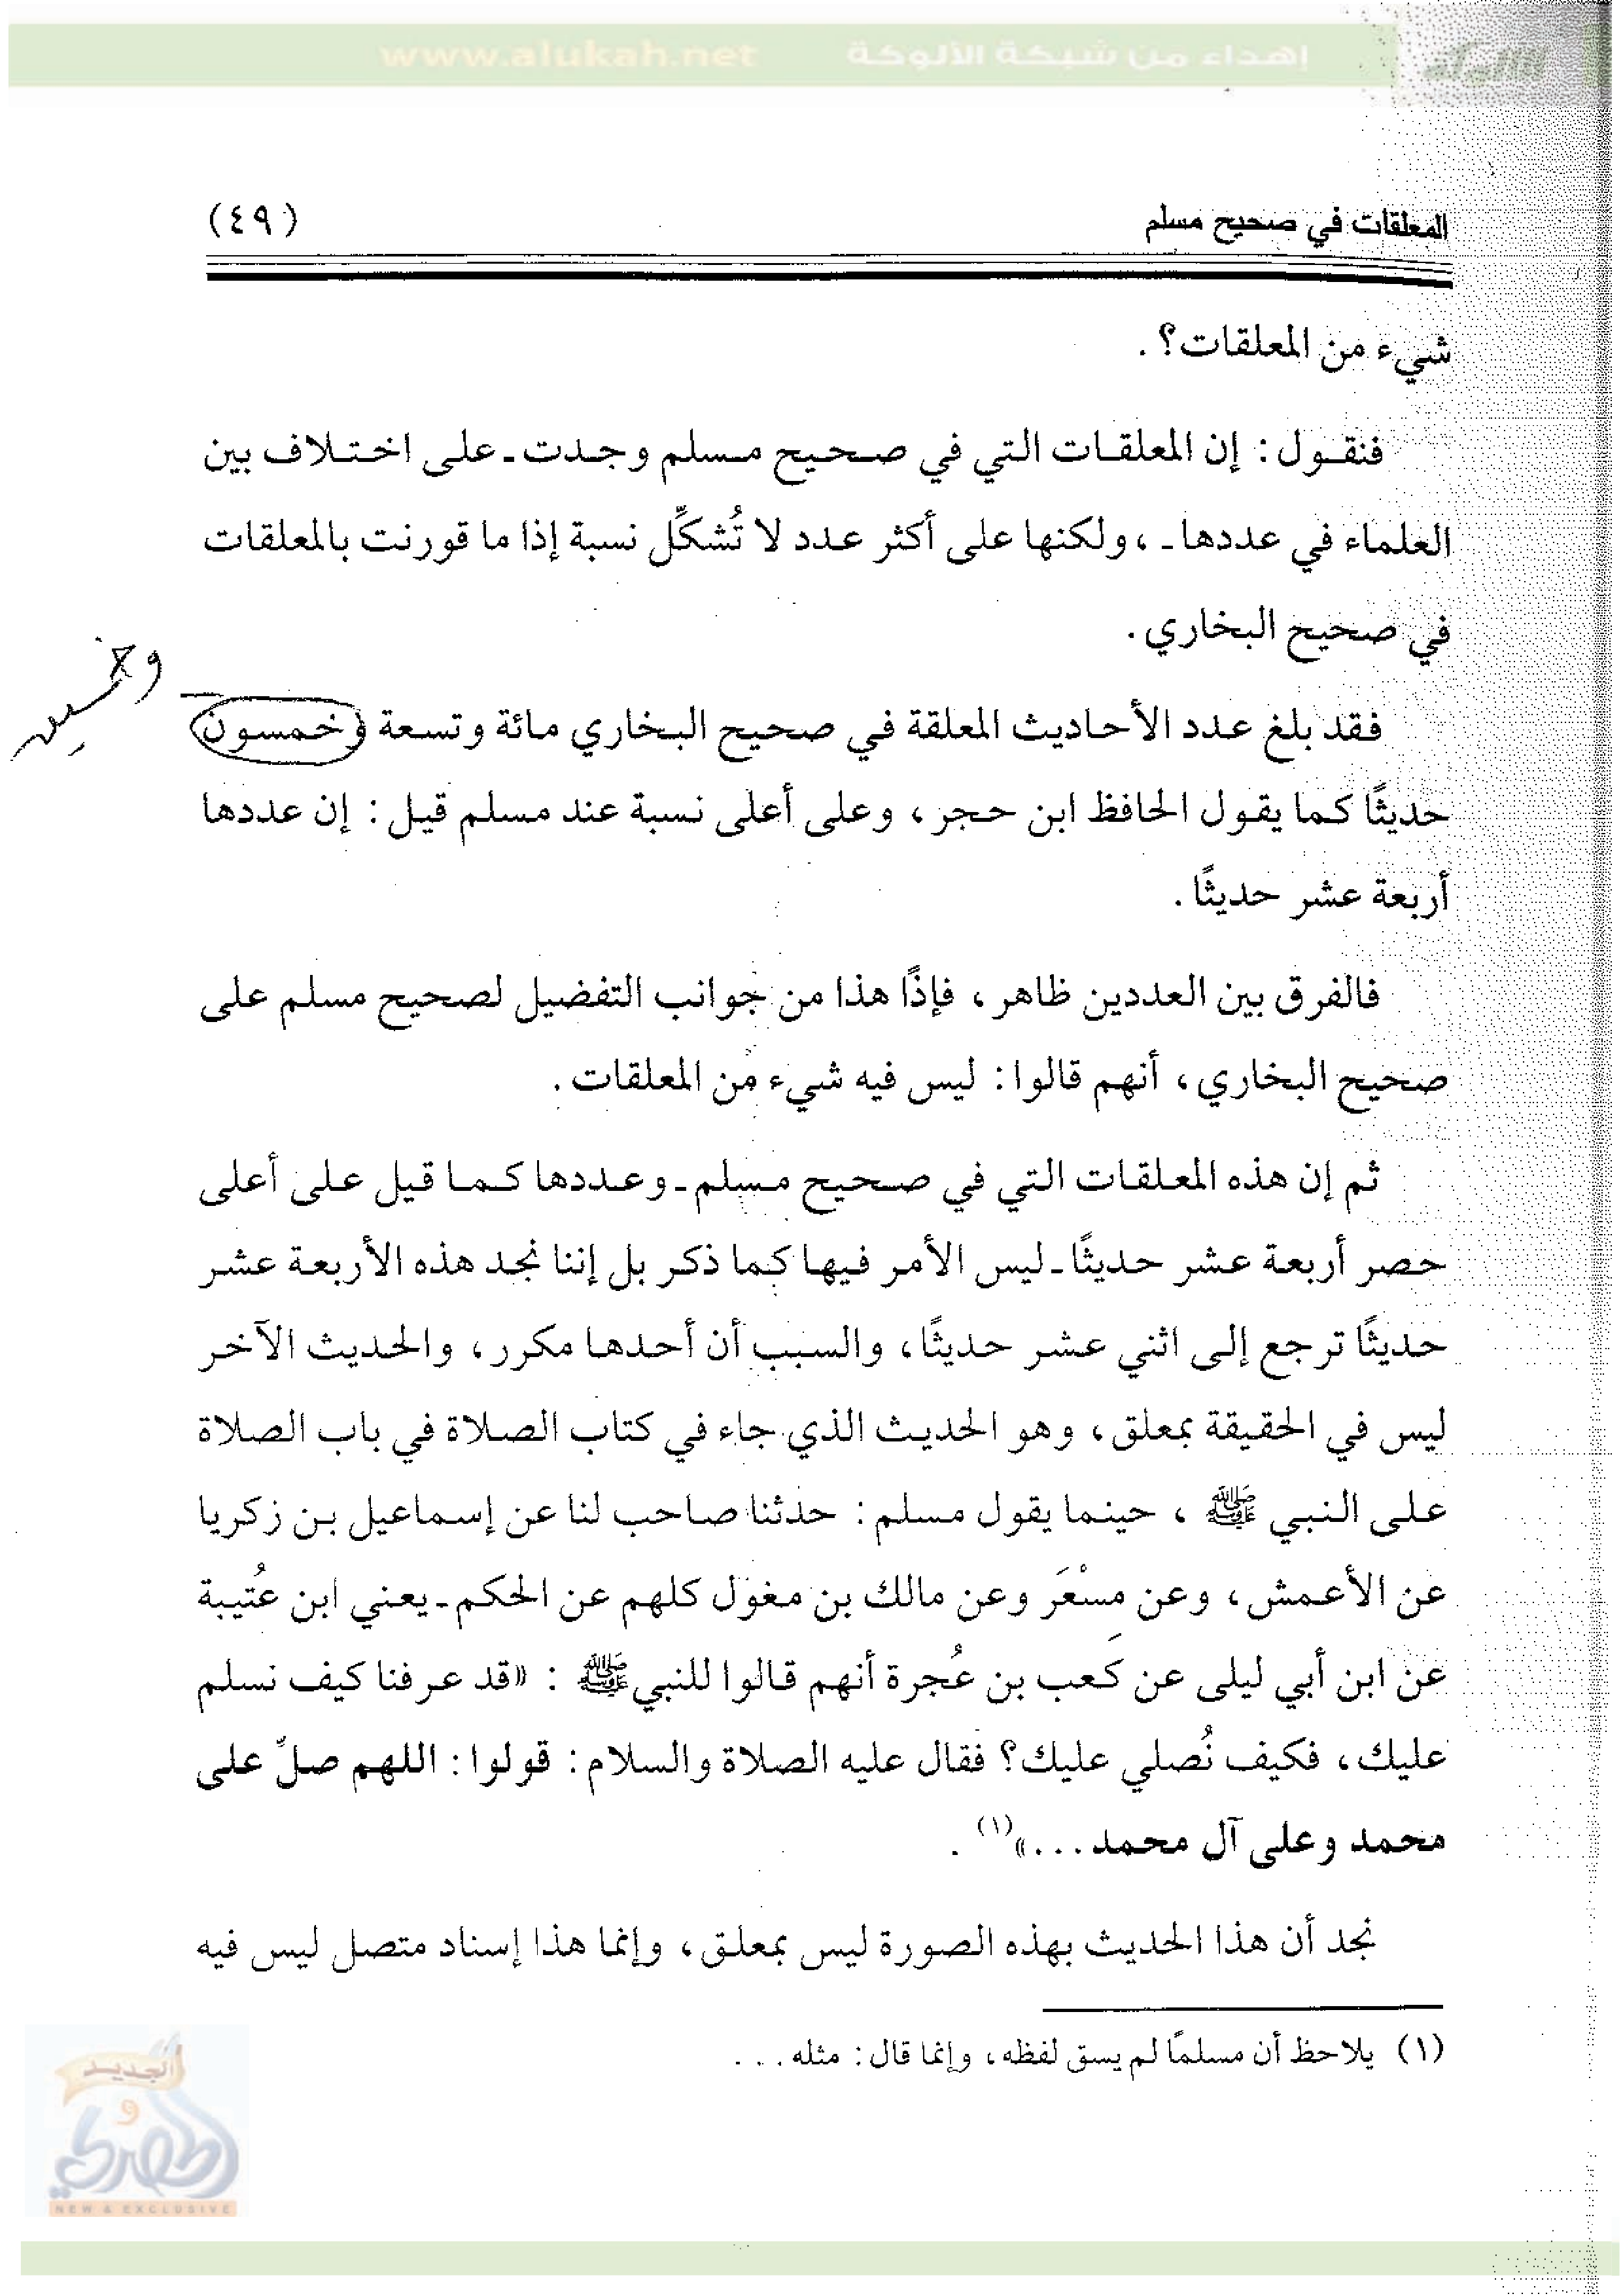 www.alukah.net إهداء من شبكة الألوكة
المعلقات في صحيح مسلم (٤٩)
شيء من المعلقات؟ .
فنقول : إن المعلقات التي في صحيح مسلم وجدت ـ على اختلاف بين
العلماء في عددها ـ ، ولكنها على أكثر عدد لا تُشكِّل نسبة إذا ما قورنت بالمعلقات
في صحيح البخاري .
وخمسين
فقد بلغ عدد الأحاديث المعلقة في صحيح البخاري مائة وتسعة وخمسون
حديثًا كما يقول الحافظ ابن حجر ، وعلى أعلى نسبة عند مسلم قيل : إن عددها
أربعة عشر حديثًا .
فالفرق بين العددين ظاهر ، فإذًا هذا من جوانب التفضيل لصحيح مسلم على
صحيح البخاري ، أنهم قالوا : ليس فيه شيء من المعلقات .
ثم إن هذه المعلقات التي في صحيح مسلم ـ وعددها كما قيل على أعلى
حصر أربعة عشر حديثًا ـ ليس الأمر فيها كما ذكر بل إننا نجد هذه الأربعة عشر
حديثًا ترجع إلى اثني عشر حديثًا ، والسبب أن أحدها مكرر ، والحديث الآخر
ليس في الحقيقة بمعلق ، وهو الحديث الذي جاء في كتاب الصلاة في باب الصلاة
على النبي ﷺ ، حينما يقول مسلم : حدثنا صاحب لنا عن إسماعيل بن زكريا
عن الأعمش ، وعن مسْعَر وعن مالك بن مغول كلهم عن الحكم ـ يعني ابن عُتيبة
عن ابن أبي ليلى عن كَعب بن عُجرة أنهم قالوا للنبي ﷺ : «قد عرفنا كيف نسلم
عليك ، فكيف نُصلي عليك؟ فقال عليه الصلاة والسلام : قولوا : اللهم صلِّ على
محمد وعلى آل محمد . . .»(١) .
نجد أن هذا الحديث بهذه الصورة ليس بمعلق ، وإنما هذا إسناد متصل ليس فيه
(١) يلاحظ أن مسلمًا لم يسق لفظه ، وإنما قال : مثله . . .
الجديد
و
الحصري
NEW & EXCLUSIVE